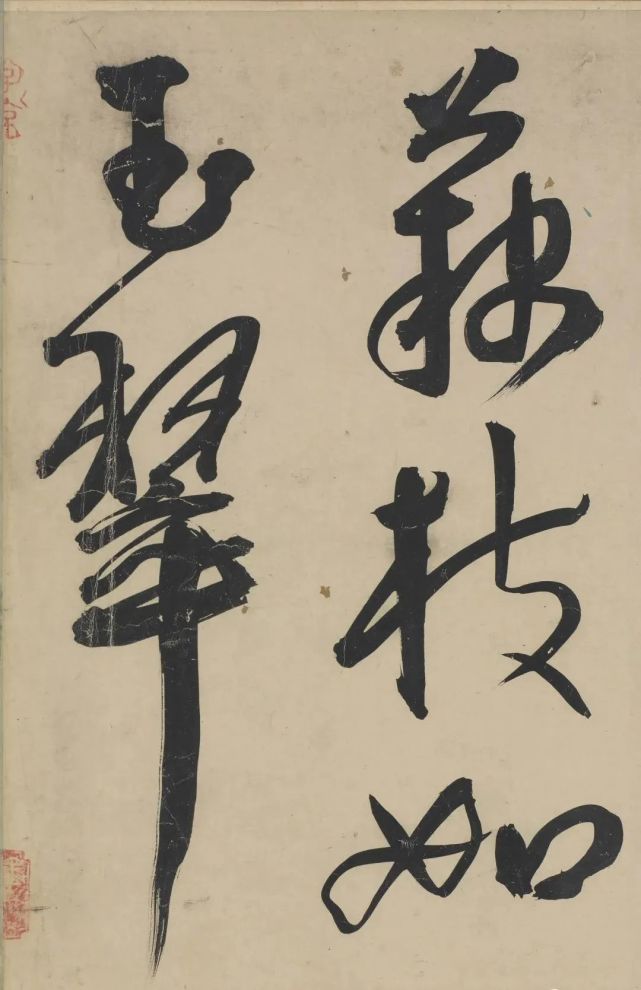 枝如
玉翠